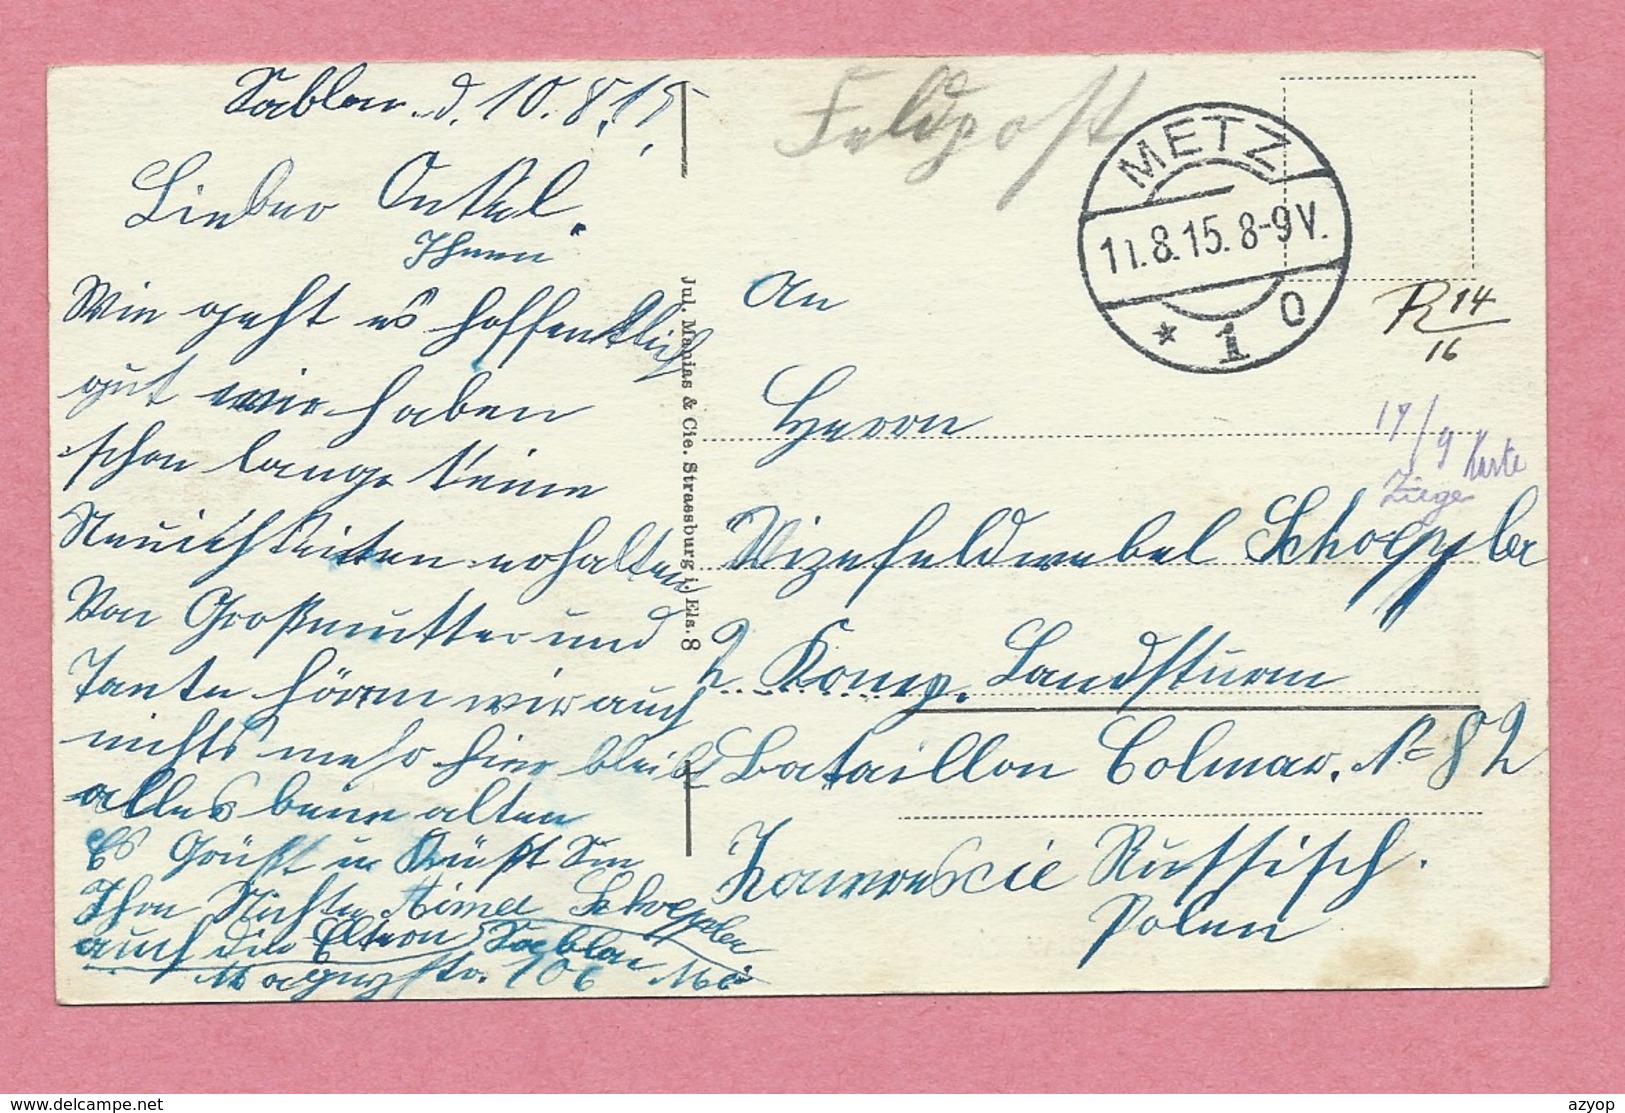 Sablon. d. 10. 8. 15.
Lieber Onkel.
Ihnen
Wie geht es hoffentlich
gut wir haben
schon lange keine
Neuichkeiten erhalten
Von Großmutter und
Tante hören wir auch
nichts mehr hier bleibt
alles beim alten
Es Grüßt u Küßt Sie
Ihre Nichte Aimee Schoeppler
auch die Eltern Sablon
str. 106
Jul. Manias & Cie. Strassburg i. Els. 8
Feldpost
METZ
11.8.15. 8-9 V.
* 1 o
R 14/16
17/9 Karte
Ziege
An
Herrn
Vizefeldwebel Schoeppler
2. Komp. Landsturm
Bataillon Colmar. N= 82
Russisch.
Polen
delcampe.net
azyop